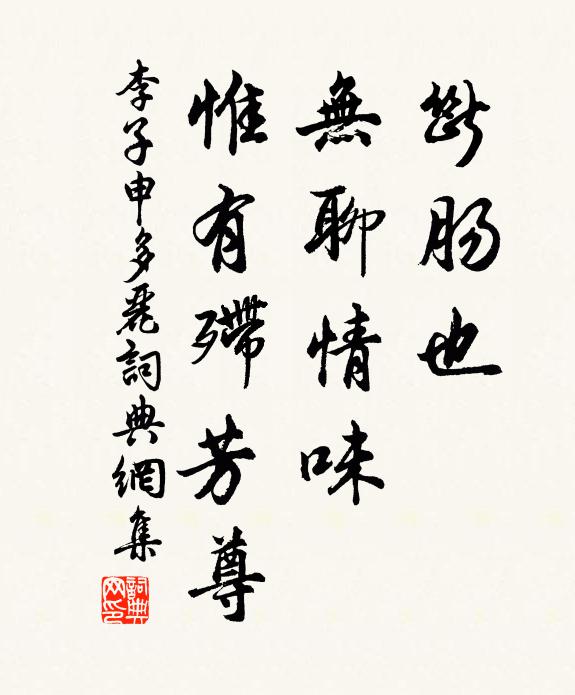 斷腸也
無聊情味
惟有殢芳尊
李子申多麗詞典網集
詞典網印